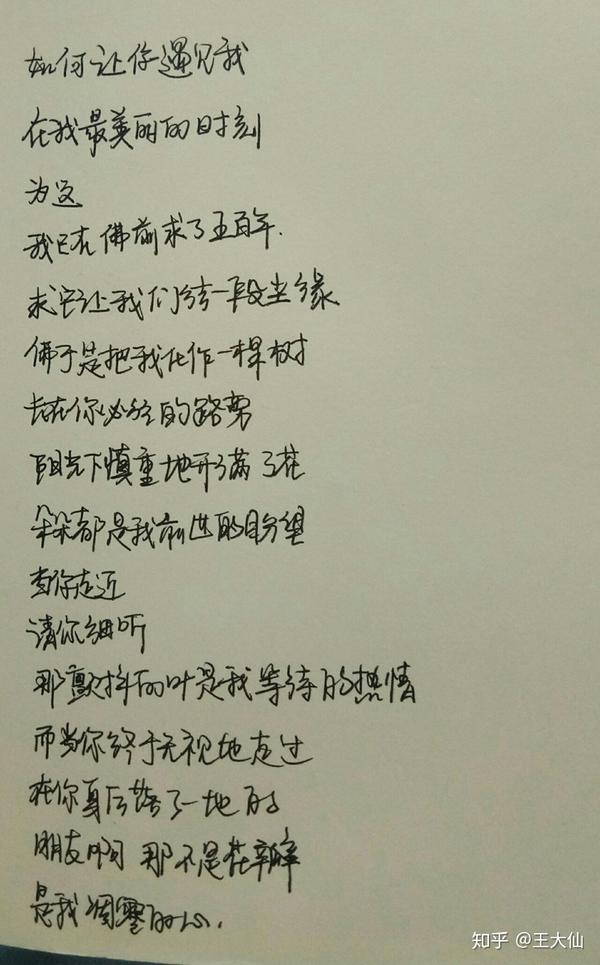 如何让你遇见我
在我最美丽的时刻
为这
我已在佛前求了五百年.
求它让我们结一段尘缘
佛于是把我化作一棵树
长在你必经的路旁
阳光下慎重地开满了花
朵朵都是我前世的盼望
当你走近
请你细听
那颤抖的叶是我等待的热情
而当你终于无视地走过
在你身后落了一地的
朋友啊 那不是花瓣
是我凋零的心.
知乎 @王大仙